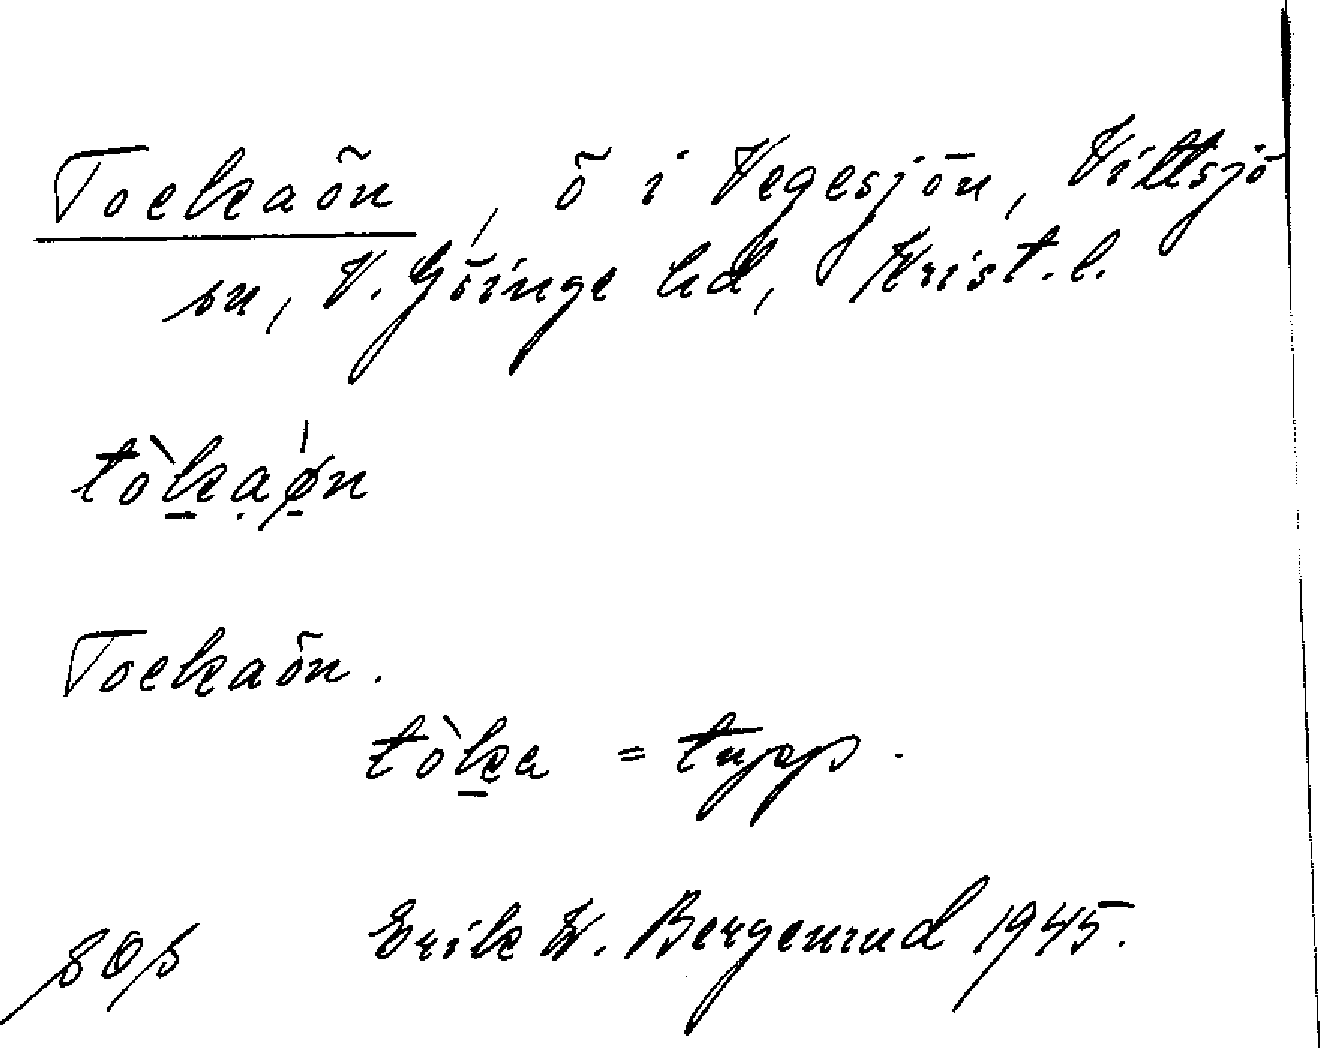 Tockaön, ö i Vegesjön, Vittsjö
sn, V. Göinge hd, Krist. l.
tòkạǿn
Tockaön.
tòka = tupp.
Erik W. Bergenrud 1945.